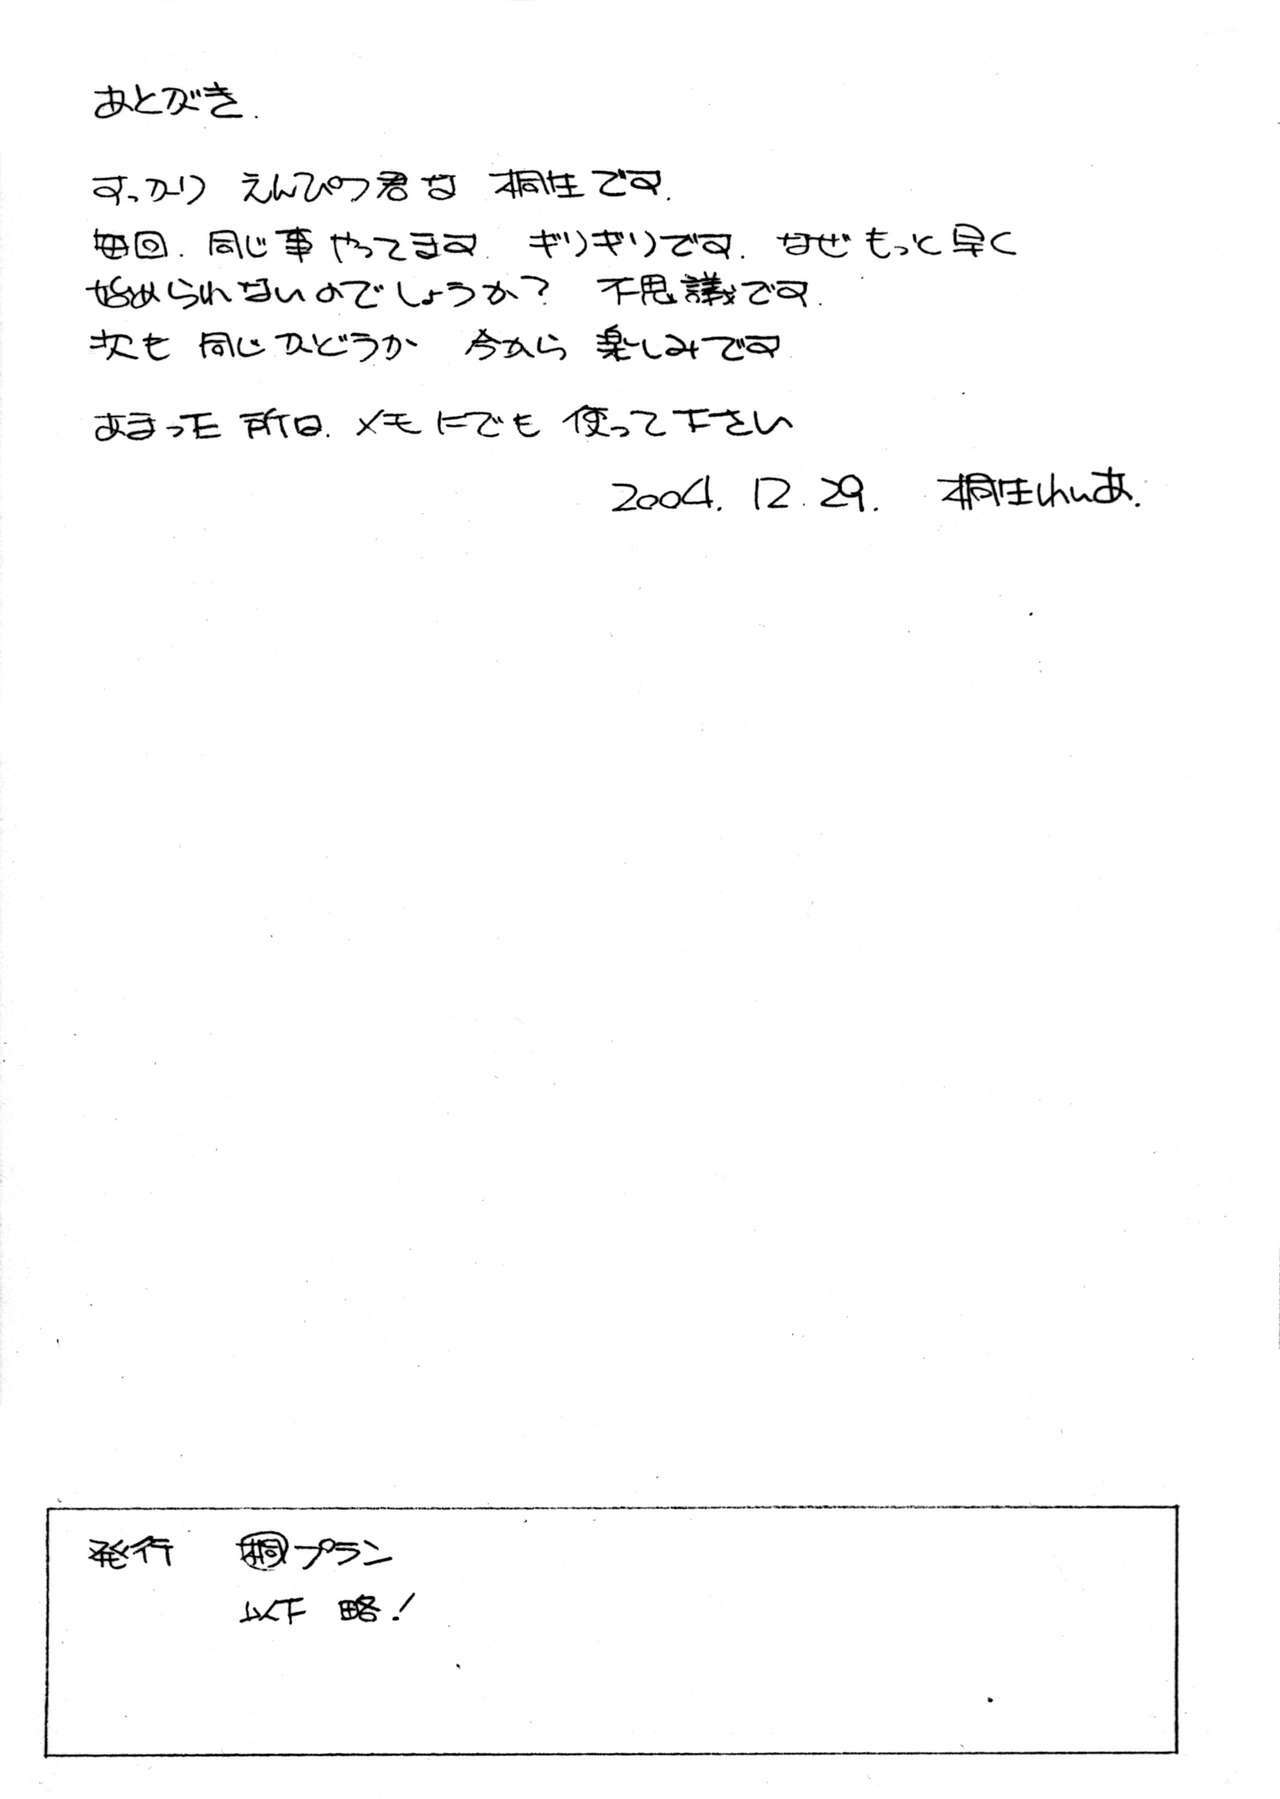 あとがき.
すっかり えんぴつ君な 桐生です.
毎回. 同じ事やってます. ギリギリです. なぜ もっと早く
始められないのでしょうか? 不思議です.
次も 同じかどうか 今から 楽しみです
あまった所は. メモにでも 使って下さい
2004. 12. 29. 桐生れいあ.
発行 桐プラン
以下 略!